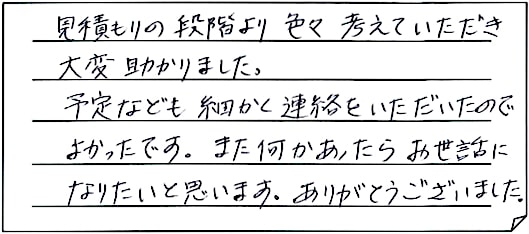 見積もりの段階より色々考えていただき
大変助かりました。
予定なども細かく連絡をいただいたので
よかったです。また何かあったらお世話に
なりたいと思います。ありがとうございました。